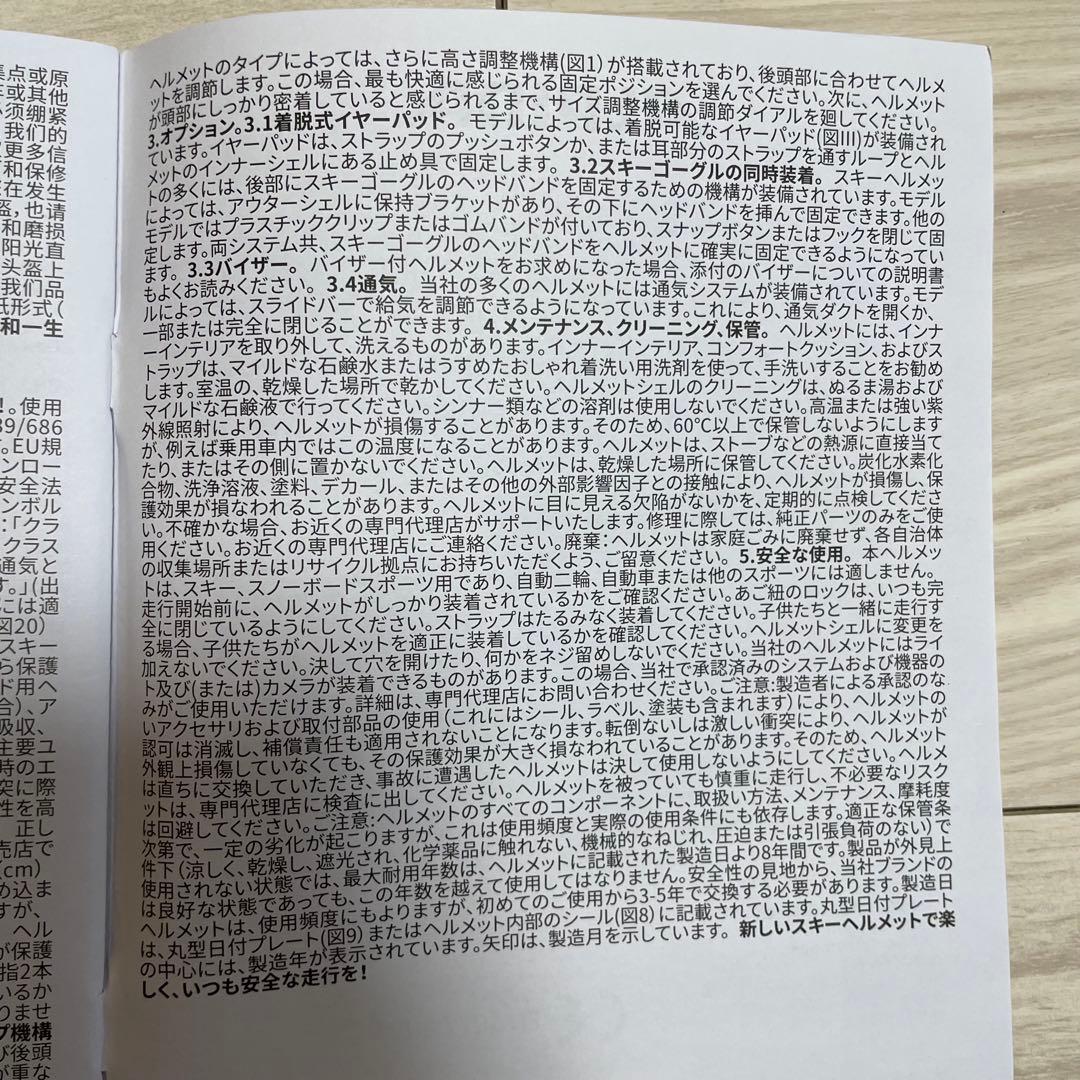 集点或原
车或其他
必须绷紧
。我们的
取更多信
和保修
应在发生
盔，也请
和磨损
阳光直
头盔上
我们品
纸形式(
和一生
!。使用
89/686
す。EU規
ンロー
安全法
ンボル
：「クラ
クラス
通気と
す。」(出
には適
図20)
スキー
ら保護
ド用ヘ
合)、ア
吸収、
主要ユ
時のエ
突に際
性を高
正し
売店で
(cm)
め込ま
すが、
ヘル
が保護
指2本
いるか
りませ
プ機構
び後頭
が重な
ヘルメットのタイプによっては、さらに高さ調整機構(図1)が搭載されており、後頭部に合わせてヘルメ
ットを調節します。この場合、最も快適に感じられる固定ポジションを選んでください。次に、ヘルメット
が頭部にしっかり密着していると感じられるまで、サイズ調整機構の調節ダイアルを廻してください。
3.オプション。3.1着脱式イヤーパッド。 モデルによっては、着脱可能なイヤーパッド(図III)が装備され
ています。イヤーパッドは、ストラップのプッシュボタンか、または耳部分のストラップを通すループとヘル
メットのインナーシェルにある止め具で固定します。 3.2スキーゴーグルの同時装着。 スキーヘルメッ
トの多くには、後部にスキーゴーグルのヘッドバンドを固定するための機構が装備されています。モデル
によっては、アウターシェルに保持ブラケットがあり、その下にヘッドバンドを挿んで固定できます。他の
モデルではプラスチッククリップまたはゴムバンドが付いており、スナップボタンまたはフックを閉じて固
定します。両システム共、スキーゴーグルのヘッドバンドをヘルメットに確実に固定できるようになってい
ます。 3.3バイザー。 バイザー付ヘルメットをお求めになった場合、添付のバイザーについての説明書
もよくお読みください。 3.4通気。 当社の多くのヘルメットには通気システムが装備されています。モデ
ルによっては、スライドバーで給気を調節できるようになっています。これにより、通気ダクトを開くか、
一部または完全に閉じることができます。 4.メンテナンス、クリーニング、保管。 ヘルメットには、インナ
ーインテリアを取り外して、洗えるものがあります。インナーインテリア、コンフォートクッション、およびス
トラップは、マイルドな石鹸水またはうすめたおしゃれ着洗い用洗剤を使って、手洗いすることをお勧め
します。室温の、乾燥した場所で乾かしてください。ヘルメットシェルのクリーニングは、ぬるま湯および
マイルドな石鹸液で行ってください。シンナー類などの溶剤は使用しないでください。高温または強い紫
外線照射により、ヘルメットが損傷することがあります。そのため、60°C以上で保管しないようにします
が、例えば乗用車内ではこの温度になることがあります。ヘルメットは、ストーブなどの熱源に直接当て
たり、またはその側に置かないでください。ヘルメットは、乾燥した場所に保管してください。炭化水素化
合物、洗浄溶液、塗料、デカール、またはその他の外部影響因子との接触により、ヘルメットが損傷し、保
護効果が損なわれることがあります。ヘルメットに目に見える欠陥がないかを、定期的に点検してくださ
い。不確かな場合、お近くの専門代理店がサポートいたします。修理に際しては、純正パーツのみをご使
用ください。お近くの専門代理店にご連絡ください。廃棄：ヘルメットは家庭ごみに廃棄せず、各自治体
の収集場所またはリサイクル拠点にお持ちいただくよう、ご留意ください。 5.安全な使用。 本ヘルメッ
トは、スキー、スノーボードスポーツ用であり、自動二輪、自動車または他のスポーツには適しません。
走行開始前に、ヘルメットがしっかり装着されているかをご確認ください。あご紐のロックは、いつも完
全に閉じているようにしてください。ストラップはたるみなく装着してください。子供たちと一緒に走行す
る場合、子供たちがヘルメットを適正に装着しているかを確認してください。ヘルメットシェルに変更を
加えないでください。決して穴を開けたり、何かをネジ留めしないでください。当社のヘルメットにはライ
ト及び(または)カメラが装着できるものがあります。この場合、当社で承認済みのシステムおよび機器の
みがご使用いただけます。詳細は、専門代理店にお問い合わせください。ご注意:製造者による承認のな
いアクセサリおよび取付部品の使用(これにはシール、ラベル、塗装も含まれます)により、ヘルメットの
認可は消滅し、補償責任も適用されないことになります。転倒ないしは激しい衝突により、ヘルメットが
外観上損傷していなくても、その保護効果が大きく損なわれていることがあります。そのため、ヘルメット
は直ちに交換していただき、事故に遭遇したヘルメットは決して使用しないようにしてください。ヘルメ
ットは、専門代理店に検査に出してください。ヘルメットを被っていても慎重に走行し、不必要なリスク
は回避してください。ご注意:ヘルメットのすべてのコンポーネントに、取扱い方法、メンテナンス、摩耗度
次第で、一定の劣化が起こりますが、これは使用頻度と実際の使用条件にも依存します。適正な保管条
件下(涼しく、乾燥し、遮光され、化学薬品に触れない、機械的なねじれ、圧迫または引張負荷のない)で
使用されない状態では、最大耐用年数は、ヘルメットに記載された製造日より8年間です。製品が外見上
は良好な状態であっても、この年数を越えて使用してはなりません。安全性の見地から、当社ブランドの
ヘルメットは、使用頻度にもよりますが、初めてのご使用から3-5年で交換する必要があります。製造日
は、丸型日付プレート(図9)またはヘルメット内部のシール(図8)に記載されています。丸型日付プレート
の中心には、製造年が表示されています。矢印は、製造月を示しています。 新しいスキーヘルメットで楽
しく、いつも安全な走行を!